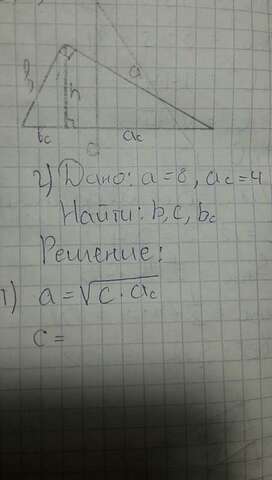 b h a
bc ac
c
2) Дано: a=8, ac=4
Найти: b, c, bc
Решение:
1) a=√c·ac
c=